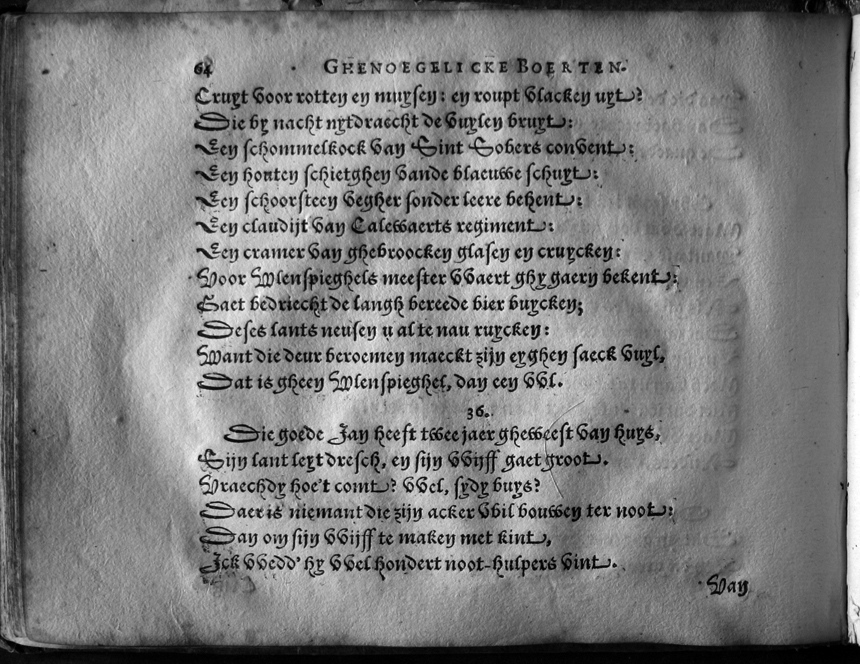 64 GHENOEGELICKE BOERTEN.
Cruyt voor rotten en muysen: en roupt vlacken uyt?
Die by nacht uytdraecht de vuylen bruyt:
Een schommelkock van Sint Sobers convent:
Een houten schietghen vande blaeuwe schuyt:
Een schoorsteen vegher sonder leere behent:
Een claudijt van Calewaerts regiment:
Een cramer van ghebroocken glasen en cruycken:
Voor Wlenspieghels meester vvaert ghy gaern bekent:
Gaet bedriecht de langh bereede bier buycken;
Deses lants neusen u al te nau ruycken:
Want die deur beroemen maeckt zijn eyghen saeck vuyl,
Dat is gheen Wlenspieghel, dan een Vvl.
36.
Die goede Jan heeft twee jaer gheweest van huys,
Sijn lant leyt dresch, en sijn VVijff gaet groot.
Vraechdy hoe't comt? VVel, sydy buys?
Daer is niemant die zijn acker vvil bouwen ter noot:
Dan om sijn VVijff te maken met kint,
Ick VVedd' hy VVel hondert noot-hulpers vint.
Van